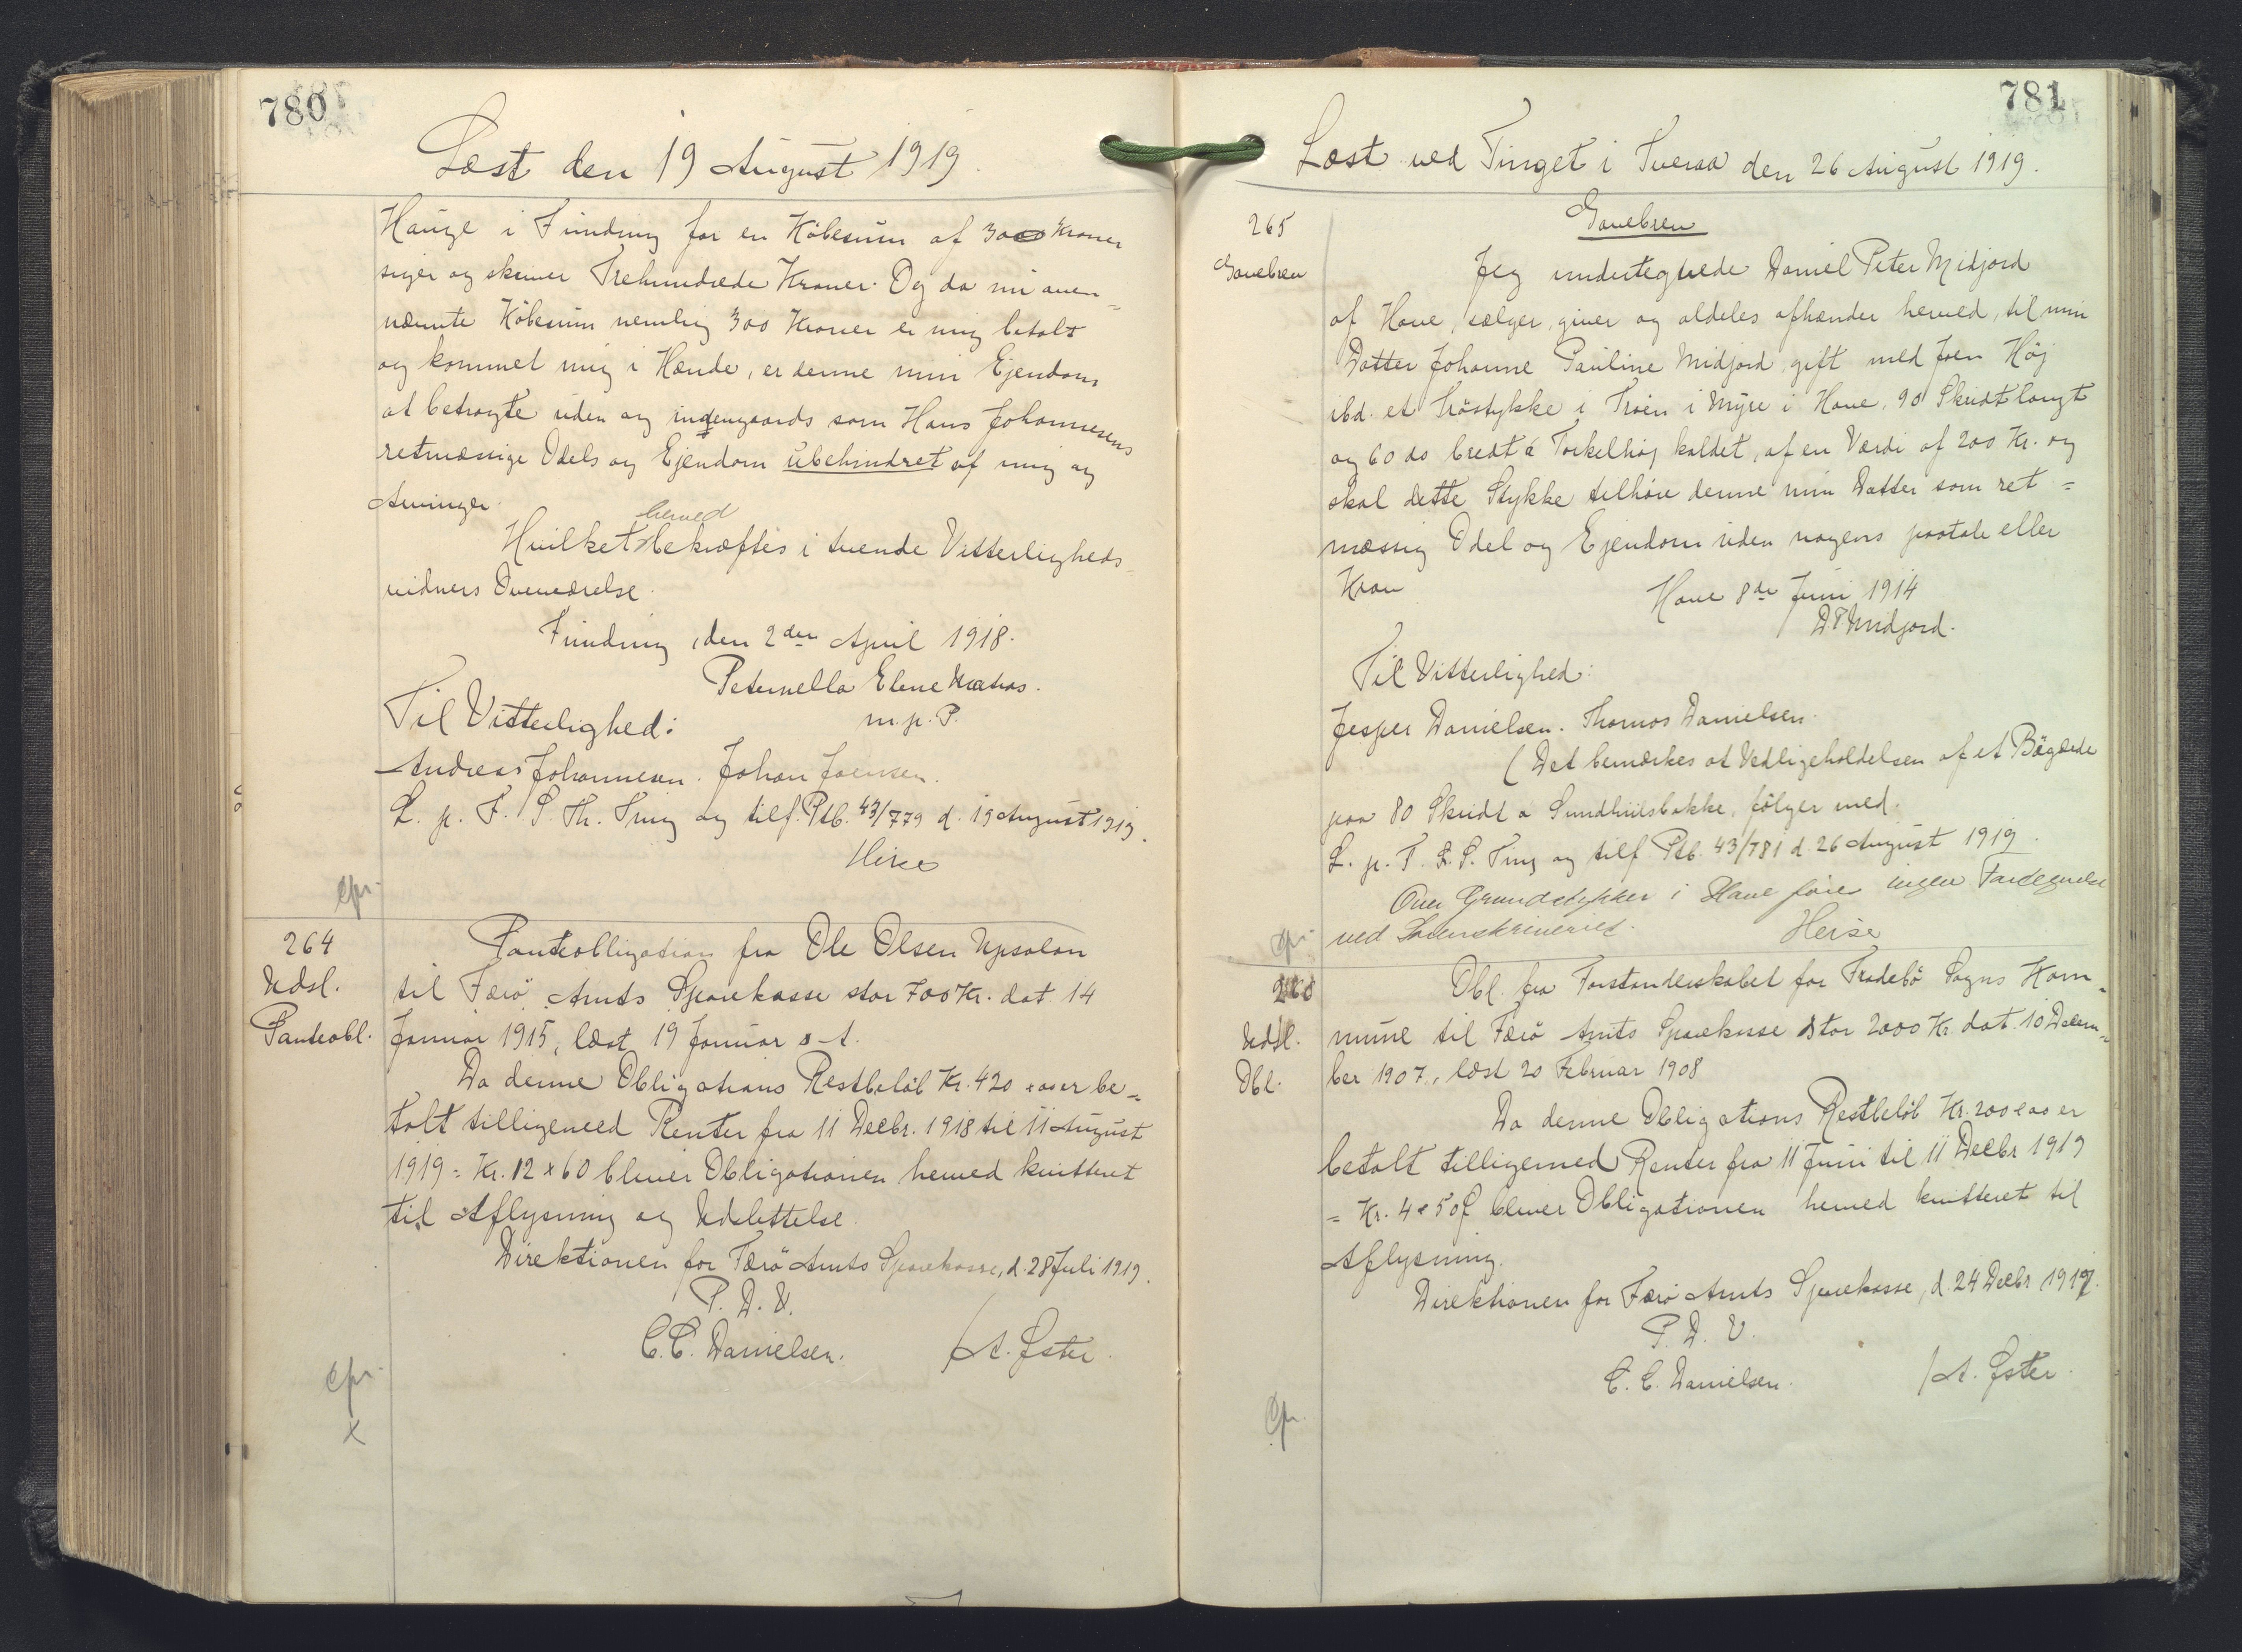 780
Læst den 19 August 1919.
Hauge i Funding for en Köbesum af 300 Kroner
siger og skriver Trehundrede Kroner. Og da nu oven=
nævnte Köbesum nemlig 300 Kroner er mig betalt
og kommet mig i Hænde, er denne min Ejendom
at betragte uden og indengaards som Hans Johannesens
retmæssige Odels og Ejendom ubehindret af mig og
Arvinger.
Hvilket herved bekræftes i tvende Vitterligheds
vidners Overværelse.
Funding, den 2den April 1918.
Peternella Elene
m. p. P.
Til Vitterlighed:
Andreas Johannesen. Johan Joensen.
L. p. F. S. Th. Ting og tilf. Ptb. 43/779 d. 19 August 1919.
Heise
cfr.
264
Udsl.
Panteobl.
Panteobligation fra Ole Olsen Upsalon
til Færö Amts Sparekasse stor 700 Kr. dat. 14
Januar 1915, læst 19 Januar s. A.
Da denne Obligations Restbelöb Kr. 420 x 00 er be=
talt tilligemed Renter fra 11 Decbr. 1918 til 11 August
1919 = Kr. 12 x 60 bliver Obligationen herved kvitteret
til Aflysning og Udslettelse.
Direktionen for Færö Amts Sparekasse, d. 28 Juli 1919.
P. D. V.
C. C. Danielsen. / A. Øster.
cfr.
x
781
Læst ved Tinget i Tveraa den 26 August 1919.
265
Gavebrev
Gavebrev
Jeg undertegnede Daniel Peter Midjord
af Hove, sælger, giver og aldeles afhænder herved, til min
Datter Johanne Pauline Midjord, gift med Joen Høj
ibd. et Tröstykke i Tröen i Myre i Hove, 90 Skridt langt
og 60 do bredt á Torkelhöj kaldet, af en Værdi af 200 Kr. og
skal dette Stykke tilhöre denne min Datter som ret=
mæssig Odel og Ejendom uden nogens paatale eller
Krav
Hove 8de Juni 1914
D P Midjord.
Til Vitterlighed:
Jesper Danielsen. Thomas Danielsen.
(Det bemærkes at Vedligeholdelsen af et Bögærde
paa 80 Skridt a Sundhuisbakke, fölger med.
L. p. F. S. S. Ting og tilf. Ptb. 43/781 d. 26 August 1919.
Over Grundstykker i Hove föres ingen Fortegnelse
ved Sorenskriveriet. Heise
cfr.
Udsl.
Obl.
Obl. fra Forstanderskabet for Frodebö Sogns Kom=
mune til Færö Amts Sparekasse stor 2000 Kr. dat. 10 Decem=
ber 1907, læst 20 Februar 1908
Da denne Obligations Restbelöb Kr. 200 x 00 er
betalt tilligemed Renter fra 11 Juni til 11 Decbr 1919
= Kr. 4 x 50 bliver Obligationen herved kvitteret til
Aflysning.
Direktionen for Færö Amts Sparekasse, d. 24 Decbr 1919.
P. D. V.
C. C. Danielsen. / A. Øster.
cfr.